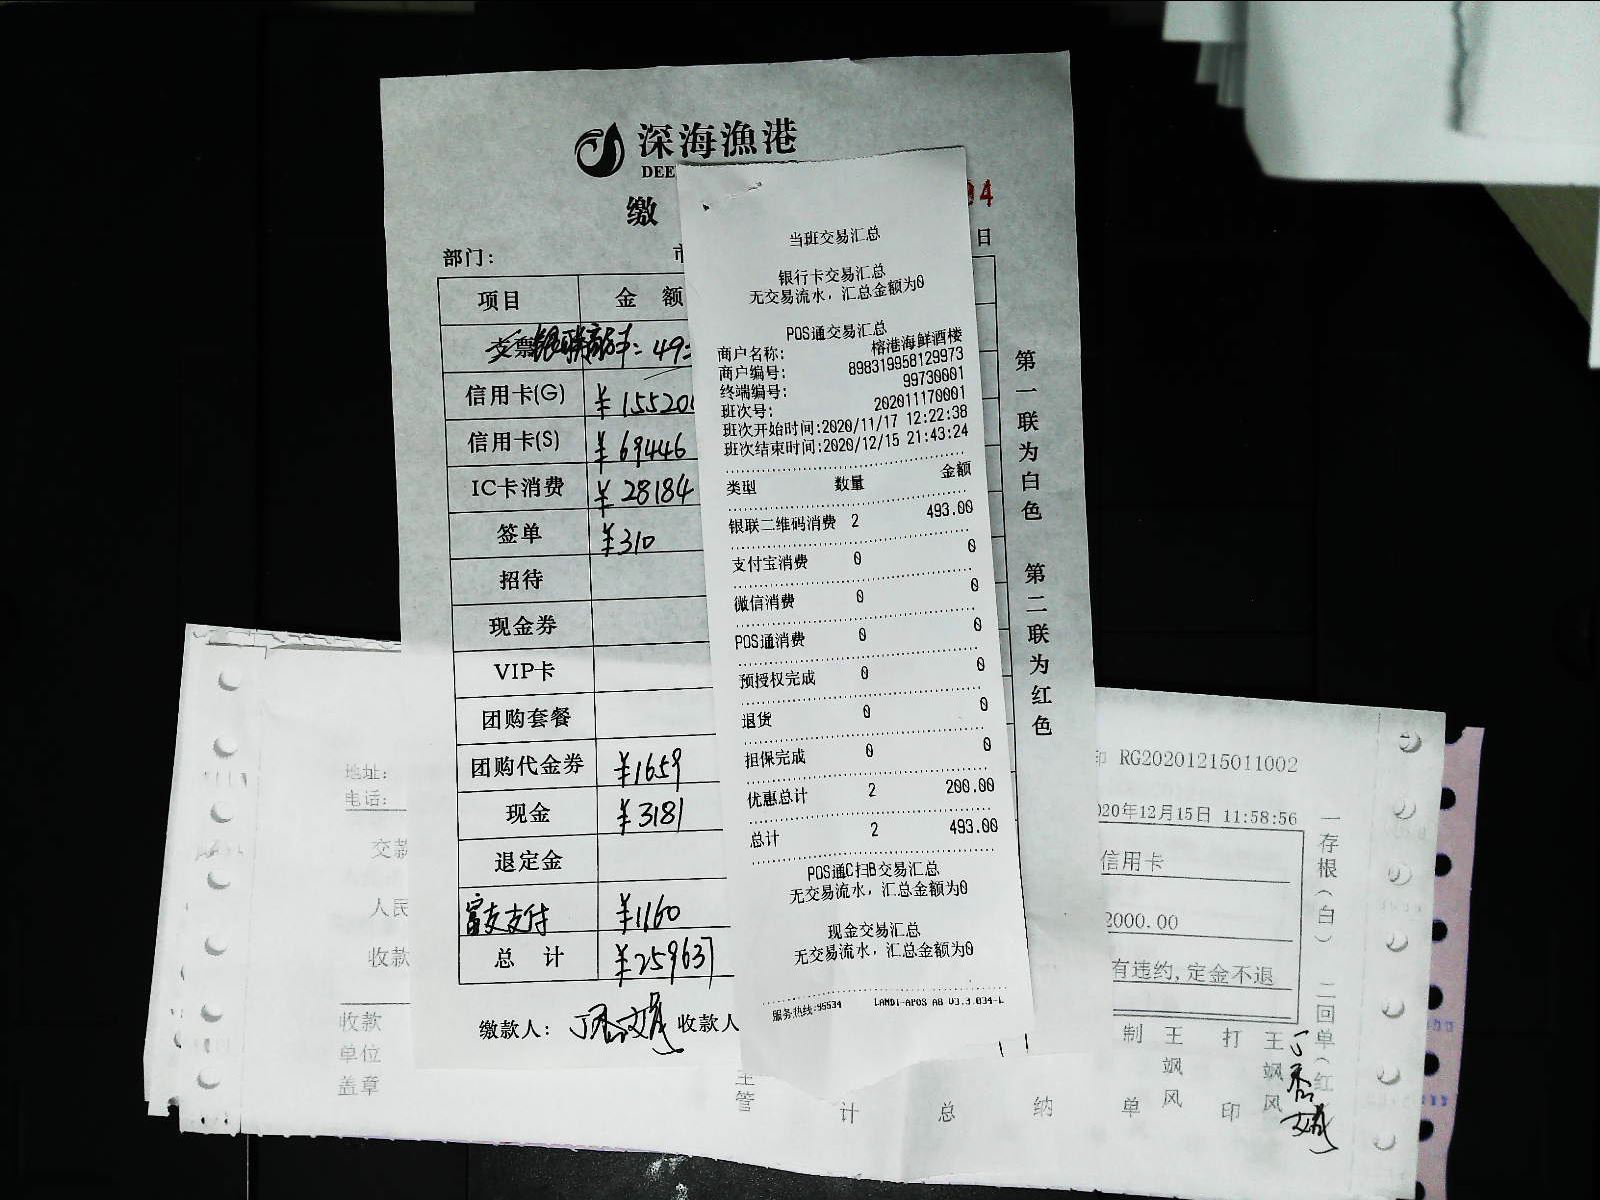 深海漁港
DEE
缴
04
部门：
市
日
项目 金 额
支票 银联商务卡：493
信用卡(G) ¥155201
信用卡(S) ¥69446
IC卡消费 ¥28184
签单 ¥310
招待
现金券
VIP卡
团购套餐
团购代金券 ¥1659
现金 ¥3181
退定金
富友支付 ¥1160
总 计 ¥259637
缴款人： 收款人
第一联为白色 第二联为红色
当班交易汇总
银行卡交易汇总
无交易流水，汇总金额为0
POS通交易汇总
商户名称: 榕港海鲜酒楼
商户编号: 898319958129973
终端编号: 99730001
班次号: 202011170001
班次开始时间:2020/11/17 12:22:38
班次结束时间:2020/12/15 21:43:24
类型 数量 金额
银联二维码消费 2 493.00
支付宝消费 0 0
微信消费 0 0
POS通消费 0 0
预授权完成 0 0
退货 0 0
担保完成 0 0
优惠总计 2 200.00
总计 2 493.00
POS通C扫B交易汇总
无交易流水，汇总金额为0
现金交易汇总
无交易流水，汇总金额为0
服务热线:95534 LANDI-APOS A8 V3.3.034-L
地址:
电话:
交款
人民
收款
收款
单位
盖章
印 RG20201215011002
020年12月15日 11:58:56
信用卡
2000.00
有违约,定金不退
主管 计 总 纳 制单 王飒风 打印 王飒风
一存根(白) 二回单(红)